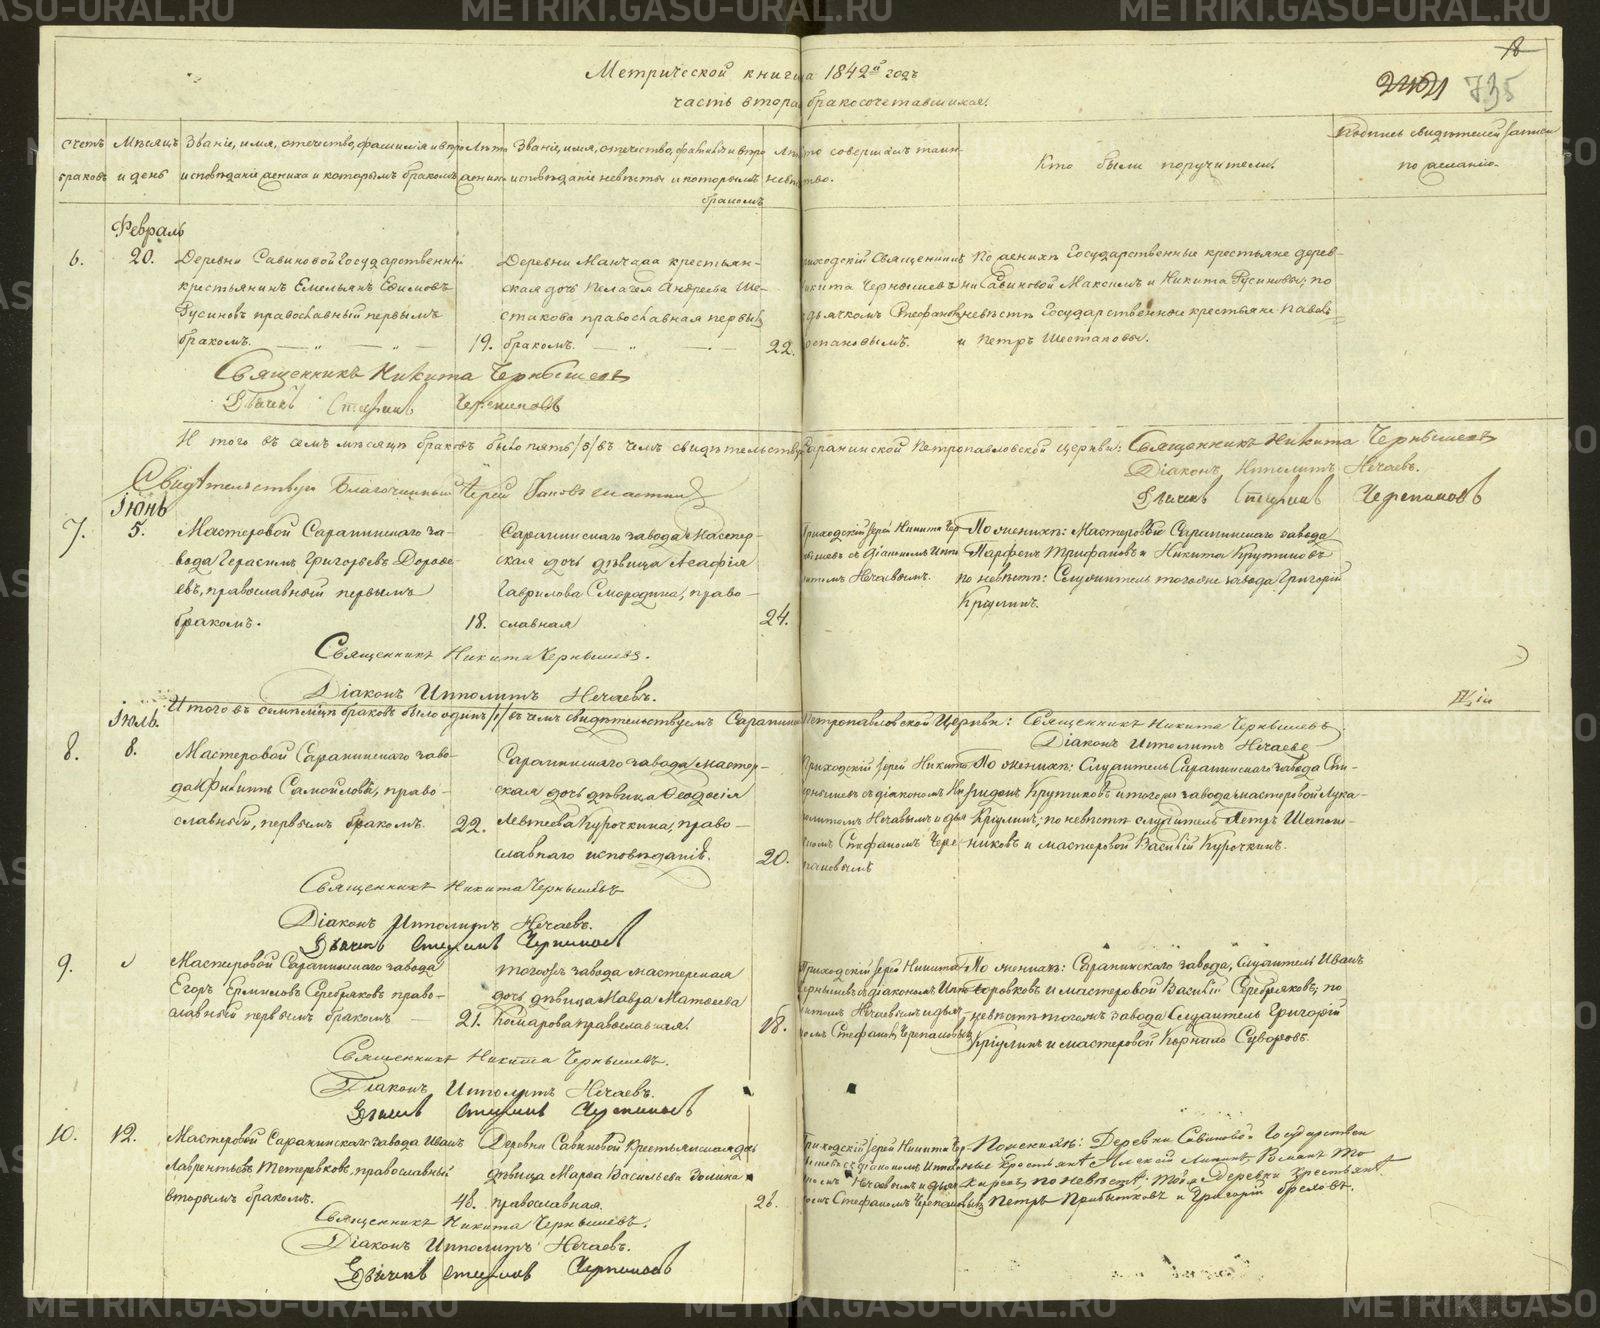 METRIKI.GASO-URAL.RU
Метрической книги 1842й годъ
часть вторая бракосочетавшихся.
18
735
счетъ браковъ
Мѣсяцъ и день
Званіе, имя, отечество, фамилія и вѣроисповѣданіе жениха и которымъ бракомъ
Лѣта жениха
Званіе, имя, отечество, фамилія и вѣроисповѣданіе невѣсты и которымъ бракомъ
Лѣта невѣсты
Кто совершалъ таинство.
Кто были поручители.
Подпись свидѣтелей записи по желанію.
Февраль
6. 20.
Деревни Савиновой Государственный
крестьянинъ Емельянъ Ефимовъ
Русиновъ православный первымъ
бракомъ. 19.
Деревни Манчажа крестьян-
ская дочь Пелагея Андреева Ше-
стакова православная первымъ
бракомъ. 22.
Приходскій Священникъ
Никита Чернышевъ
съ дьячкомъ Стефаномъ
Черепановымъ.
По женихѣ Государственные крестьяне дерев-
ни Савиновой Максимъ и Никита Русиновы; по
невѣстѣ Государственные крестьяне Павелъ
и Петръ Шестаковы.
Священникъ Никита Чернышевъ
Дьячекъ Стефанъ Черепановъ
Итого въ семъ мѣсяцѣ браковъ было пять /5/ въ чемъ свидѣтельствуемъ Саранинской Петропавловской церкви: Священникъ Никита Чернышевъ
Діаконъ Ипполитъ Нечаевъ.
Дьячекъ Стефанъ Черепановъ
Свидѣтельствуетъ Благочинный Іерей
Іюнь
7. 5.
Мастеровой Саранинскаго за-
вода Герасимъ Григорьевъ Дорофе-
евъ, православный первымъ
бракомъ. 18.
Саранинскаго завода мастер-
ская дочь дѣвица Агафія
Гаврилова Смородина, право-
славная 24.
Приходскій Іерей Никита Чер-
нышевъ съ діакономъ Иппо-
литомъ Нечаевымъ.
По женихѣ: Мастеровой Саранинскаго завода
Парфенъ Трифановъ и Никита Крутиковъ
по невѣстѣ: Служитель тогоже завода Григорій
Кріулинъ.
Священникъ Никита Чернышевъ.
Діаконъ Ипполитъ Нечаевъ.
Итого въ семъ мѣсяцѣ браковъ было одинъ /1/ въ чемъ свидѣтельствуемъ Саранинской Петропавловской Церкви: Священникъ Никита Чернышевъ
Діаконъ Ипполитъ Нечаевъ
Іюль.
8. 8.
Мастеровой Саранинскаго заво-
да Филиппъ Самойловъ, право-
славный, первымъ бракомъ. 22.
Саранинскаго завода мастер-
ская дочь дѣвица Феодосія
Левтеева Курочкина, право-
славнаго исповѣданія. 20.
Приходскій Іерей Никита
Чернышевъ съ діакономъ Ип-
политомъ Нечаевымъ и дья-
чкомъ Стефаномъ Чере-
пановымъ
По женихѣ: Служитель Саранинскаго завода Спи-
ридонъ Крутиковъ и тогоже завода мастеровой Лука
Кріулинъ; по невѣстѣ служитель Петръ Шапош-
никовъ и мастеровой Василій Курочкинъ.
Священникъ Никита Чернышевъ
Діаконъ Ипполитъ Нечаевъ.
Дьячекъ Стефанъ Черепановъ
9.
Мастеровой Саранинскаго завода
Егоръ Ермиловъ Серебряковъ право-
славный первымъ бракомъ 21.
тогожъ завода мастерская
дочь дѣвица Мавра Матвеева
Комарова православная. 18.
Приходскій Іерей Никита
Чернышевъ съ діакономъ Иппо-
литомъ Нечаевымъ и дьяч-
комъ Стефаномъ Черепановымъ
По женихѣ: Саранинскаго завода, Служитель Иванъ
Боровковъ и мастеровой Василій Серебряковъ; по
невѣстѣ тогожъ завода Служитель Григорій
Кріулинъ и мастеровой Корнило Суворовъ
Священникъ Никита Чернышевъ.
Діаконъ Ипполитъ Нечаевъ.
Дьячекъ Стефанъ Черепановъ
10. 12.
Мастеровой Саранинскаго завода Иванъ
Лаврентьевъ Тетеревковъ, православный
вторымъ бракомъ. 48.
Деревни Савиновой Крестьянская дочь
дѣвица Марфа Васильева Зотина
православная. 26.
Приходскій Іерей Никита Чер-
нышевъ съ діакономъ Иппо-
литомъ Нечаевымъ и дьяч-
комъ Стефаномъ Черепановымъ
По женихѣ: Деревни Савиновой Государствен
ные Крестьяне Алексѣй Романъ То
каревъ, по невѣстѣ: той же Деревни Крестьяне
Петръ и Григорій Ореловъ.
Священникъ Никита Чернышевъ.
Діаконъ Ипполитъ Нечаевъ.
Дьячекъ Стефанъ Черепановъ